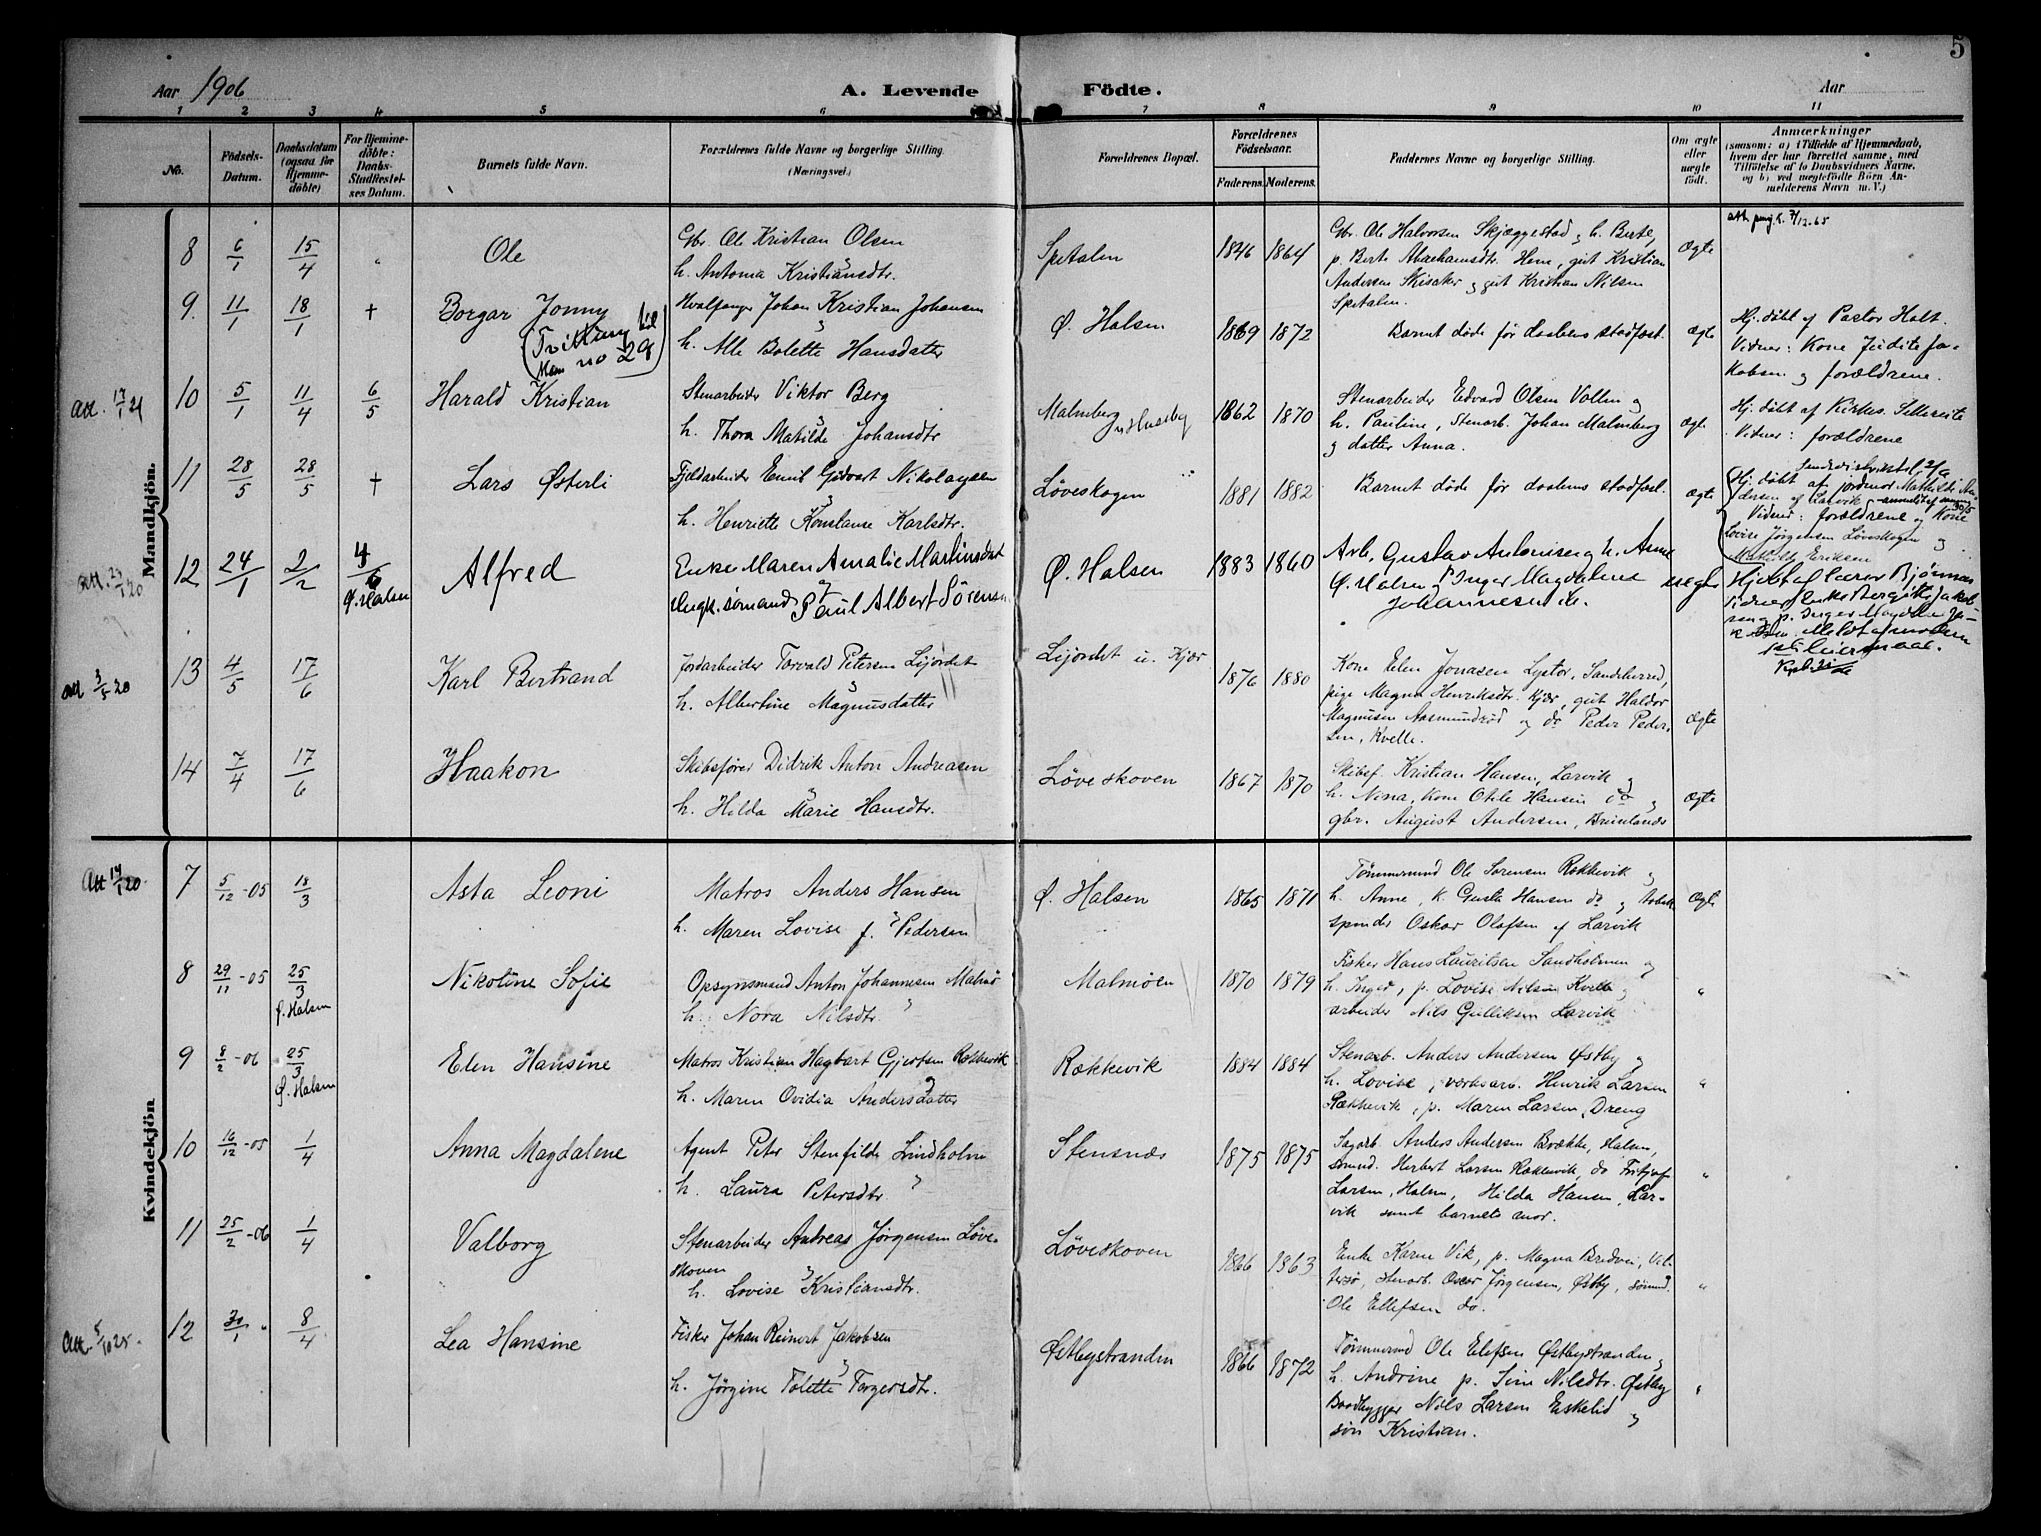 5
Aar 1906 A. Levende Födte. Aar
1 2 3 4 5 6 7 8 9 10 11
No.
Födsels-Datum.
Daabsdatum (ogsaa for Hjemmedöbte)
For Hjemmedöbte: Daabs-Stadfæstelses Datum.
Barnets fulde Navn.
Forældrenes fulde Navne og borgerlige Stilling. (Næringsvei.)
Forældrenes Bopæl.
Forældrenes Födselsaar.
Faderens. Moderens.
Faddernes Navne og borgerlige Stilling.
Om ægte eller uægte födt.
Anmærkninger
(saasom: a) i Tilfælde af Hjemmedaab, hvem der har forrettet samme, med Tilföielse af to Daabsvidners Navne. og b) ved uægtefödte Börn Anmelderens Navn m. V.)
Mandkjön.
8 6/1 15/4 „ Ole
Gbr. Ole Kristian Olsen
h. Antonia Kristiansdtr.
Spetalen 1846 1864
Gbr. Ole Halvorsen Skjæggestad og h. Berte,
p. Berte Abrahamsdtr. Hem, gut Kristian
Andersen Skisaker og gut Kristian Nilsen
Spetalen.
Ægte
att. 7/12-65
9. 11/1 18/1 + Borgar Jonny
(Tvilling til no 29)
Hvalfanger Johan Kristian Johansen
h. Alle Bolette Hansdatter
Ø. Halsen 1869 1872
Barnet døde før daabens stadfæst.
ægte
Hj. døbt af Pastor Holt.
Vidner: Kone Judite Ja-
kobsen og forældrene.
Att. 17/1 21
10 5/1 11/4 6/5 Harald Kristian
Stenarbeider Viktor Berg
h. Thora Matilde Johansdtr
Malmberg v/Huseby 1862 1870
Stenarbeider Edvard Olsen Vollen og
h. Pauline, Stenarb. Johan Malmberg
og datter Anna.
ægte
Hj. døbt af Kirkes.
Vidner: forældrene
11 28/5 28/5 + Lars Østerli
Fjeldarbeider Emil Gidvart Nikolaysen
h. Henriette Konstanse Karlsdtr.
Løveskogen 1881 1882
Barnet døde før daabens stadfæst.
ægte
Hj. døbt af jordmor Mathilde An-
dersen af Larvik
Vidner: forældrene og Kone
Lovise Jørgensen Løveskogen og
Mathilde Eriksen
Att. 20
12 24/1 2/2 4/6 Ø. Halsen Alfred
Enke Maren Amalie Martinsdat
Ungk. sømand Paul Albert Sörensen
Ø. Halsen 1883 1860
Arb. Gustav Antonisen og h. Anne
Ø. Halsen P. Inger Magdalene
Johannesen do.
uegte
Hjdbt af Lærer Bjørnnes
Vidner: Enke Bergitte Jakob-
sen og p. Inger Magdalene Ja-
k sen. Meldt af moderen
Leiermaal.
Att 3/5 20
13 4/5 17/6 Karl Bertrand
Jordarbeider Torvald Petersen Lijordet
h. Albertine Magnusdatter
Lijordet u. Kjær 1876 1880
Kone Elen Jonasen Lystor, Sandeherred,
pige Magna Henriksdtr. Kjær, gut Haldor
Magnusen Aasmundrød og do Peder Peder-
sen, Kvelle.
ægte
14 7/4 17/6 Haakon
Skibsfører Didrik Anton Andreasen
h. Hilda Marie Hansdtr.
Løveskoven 1867 1870
Skibsf. Kristian Hansen, Larvik og
h. Nina, Kone Otile Hansen do og
gbr. August Andersen, Brunlanes
ægte
Kvindekjön
Att 14/1 20
7 5/12-05 18/3 Asta Leoni
Matros Anders Hansen
h. Maren Lovise f. Pedersen
Ø. Halsen 1865 1871
Tømmermand Ole Sørensen Rækkevik og
h. Anne, k. Gusta Hansen do og Reb-
spinder Oskar Olafsen af Larvik
Ægte
8 29/11-05 25/3 Ø. Halsen Nikoline Sofie
Opsynsmand Anton Johannesen Malmø
h. Nora Nilsdtr.
Malmöen 1870 1879
Fisker Hans Lauritsen Sandholmen og
h. Inger, p. Lovise Nilsen Kvelle og
arbeider Nils Gulliksen Larvik
„
9 8/2-06 25/3 Ø. Halsen Elen Hansine
Matros Kristian Hagbart Gjertsen Rækkevik
h. Maren Ovidia Andersdatter
Rækkevik 1884 1884
Stenarb. Anders Andersen Østby og
h. Lovise, verksarb. Henrik Larsen
Rækkevik, p. Maren Larsen, Dreng
„
10 16/12-05 1/4 Anna Magdalene
Agent Peter Stenfilde Lindholm
h. Laura Petersdtr
Stensnæs 1875 1875
Sagarb. Anders Andersen Brække, Halsen,
sømd. Herbert Larsen Rækkevik, do Fritjof
Larsen, Halsen, Hilda Hansen, Lar-
vik samt barnets mor.
„
11 25/2-06 1/4 Valborg
Stenarbeider Andreas Jørgensen Løve-
skoven
h. Lovise Kristiansdtr.
Løveskoven 1866 1863
Enke Karen Vik, p. Magna Bredvei, Vil-
tersø, stenarb. Oscar Jørgensen, Østby, sømnd.
Ole Ellefsen do.
„
Att. 5/10 25
12 30/1 „ 8/4 Lea Hansine
Fisker Johan Reinert Jakobsen
h. Jörgine Tolette Torgersdtr.
Østbystranden 1866 1872
Tømmermd Ole Elefsen Østbystranden og
h. Andrine p. Sine Nilsdtr. Østby
Baadbygger Nils Larsen Eskelid og
søn Kristian.
„